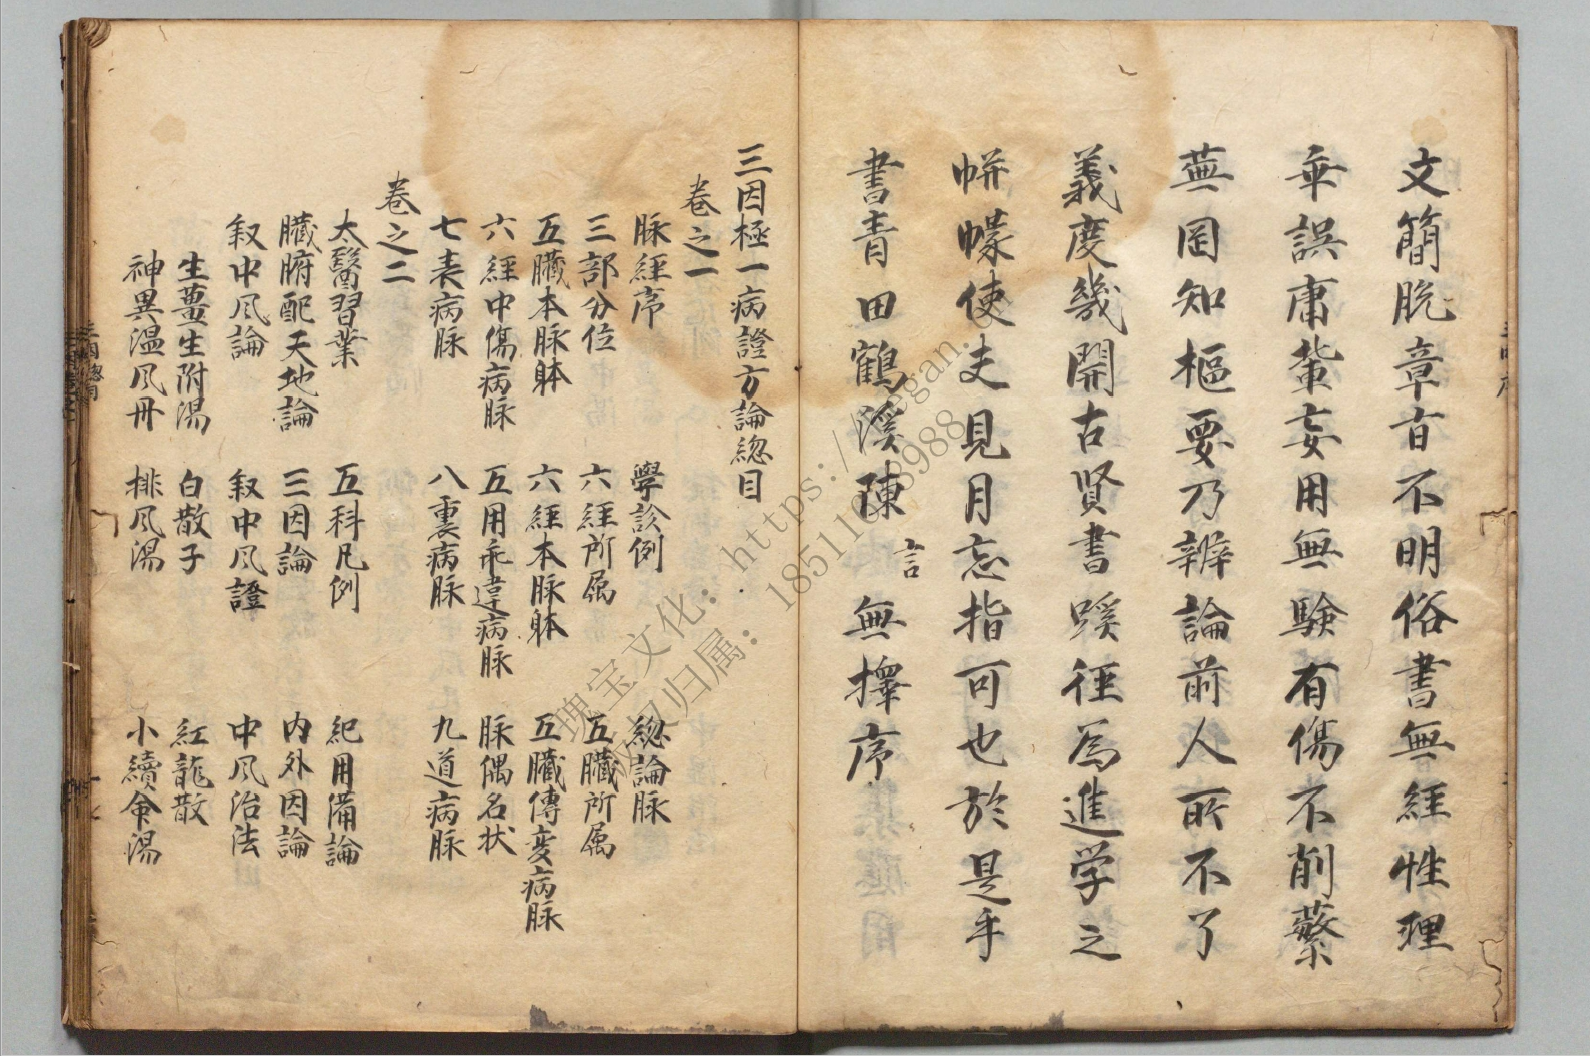 文簡脱章旨不明俗書無經性理
乖誤庸輩妄用無験有傷不削繁
蕪罔知樞要乃辨論前人所不了
義度幾開古賢書蹊徑為進学之
帡幪使夫見月忘指可也於是乎
書青田鶴溪陳言無擇序
三因極一病證方論總目
巻之一
脉經序 學診例 総論脉
三部分位 六經所属 五臓所属
五臓本脉躰 六経本脉躰 五臓傳変病脉
六經中傷病脉 五用乖違病脉 脉偶名状
七表病脉 八裏病脉 九道病脉
巻之二
太醫習業 五科凡例 紀用備論
臓腑配天地論 三因論 内外因論
叙中风論 叙中风證 中风治法
生薑生附湯 白散子 紅龍散
神異温风丹 排风湯 小續命湯
瑰宝文化：https://
权归属：